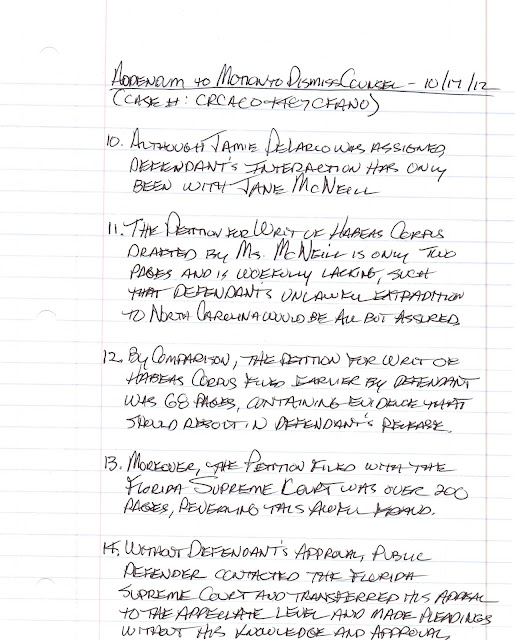 ADDENDUM TO MOTION TO DISMISS COUNSEL - 10/17/12
(CASE #:
10. ALTHOUGH JAMIE DELARCO WAS ASSIGNED,
DEFENDANT'S INTERACTION HAS ONLY
BEEN WITH JANE MCNEILL
11. THE PETITION FOR WRIT OF HABEAS CORPUS
DRAFTED BY MS. MCNEILL IS ONLY TWO
PAGES AND IS WOEFULLY LACKING, SUCH
THAT DEFENDANT'S UNLAWFUL EXTRADITION
TO NORTH CAROLINA WOULD BE ALL BUT ASSURED
12. BY COMPARISON, THE PETITION FOR WRIT OF
HABEAS CORPUS FILED EARLIER BY DEFENDANT
WAS 68 PAGES, CONTAINING EVIDENCE THAT
SHOULD RESULT IN DEFENDANT'S RELEASE.
13. MOREOVER, THE PETITION FILED WITH THE
FLORIDA SUPREME COURT WAS OVER 200
PAGES, REVEALING THIS AWFUL FRAUD.
14. WITHOUT DEFENDANT'S APPROVAL, PUBLIC
DEFENDER CONTACTED THE FLORIDA
SUPREME COURT AND TRANSFERRED HIS APPEAL
TO THE APPELLATE LEVEL AND MADE PLEADINGS
WITHOUT HIS KNOWLEDGE AND APPROVAL,